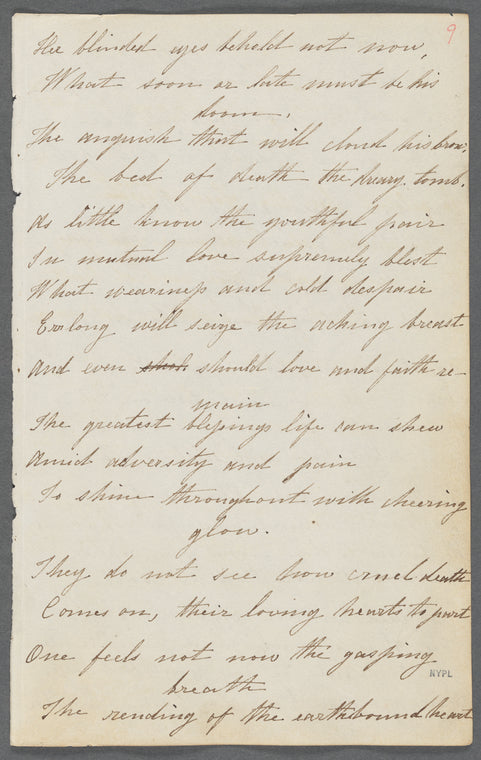 9
His blinded eyes behold not now,
What soon or late must be his
doom,
The anguish that will cloud his brow,
The bed of death the dreary tomb.
As little know the youthful pair
In mutual love supremely blest
What weariness and cold despair
Ere long will seize the aching breast
And even shoul should love and faith re-
main
The greatest blessings life can shew
Amid adversity and pain
To shine throughout with cheering
glow.
They do not see how cruel death
Comes on, their loving hearts to part
One feels not now the gasping
breath
The rending of the earthbound heart
NYPL